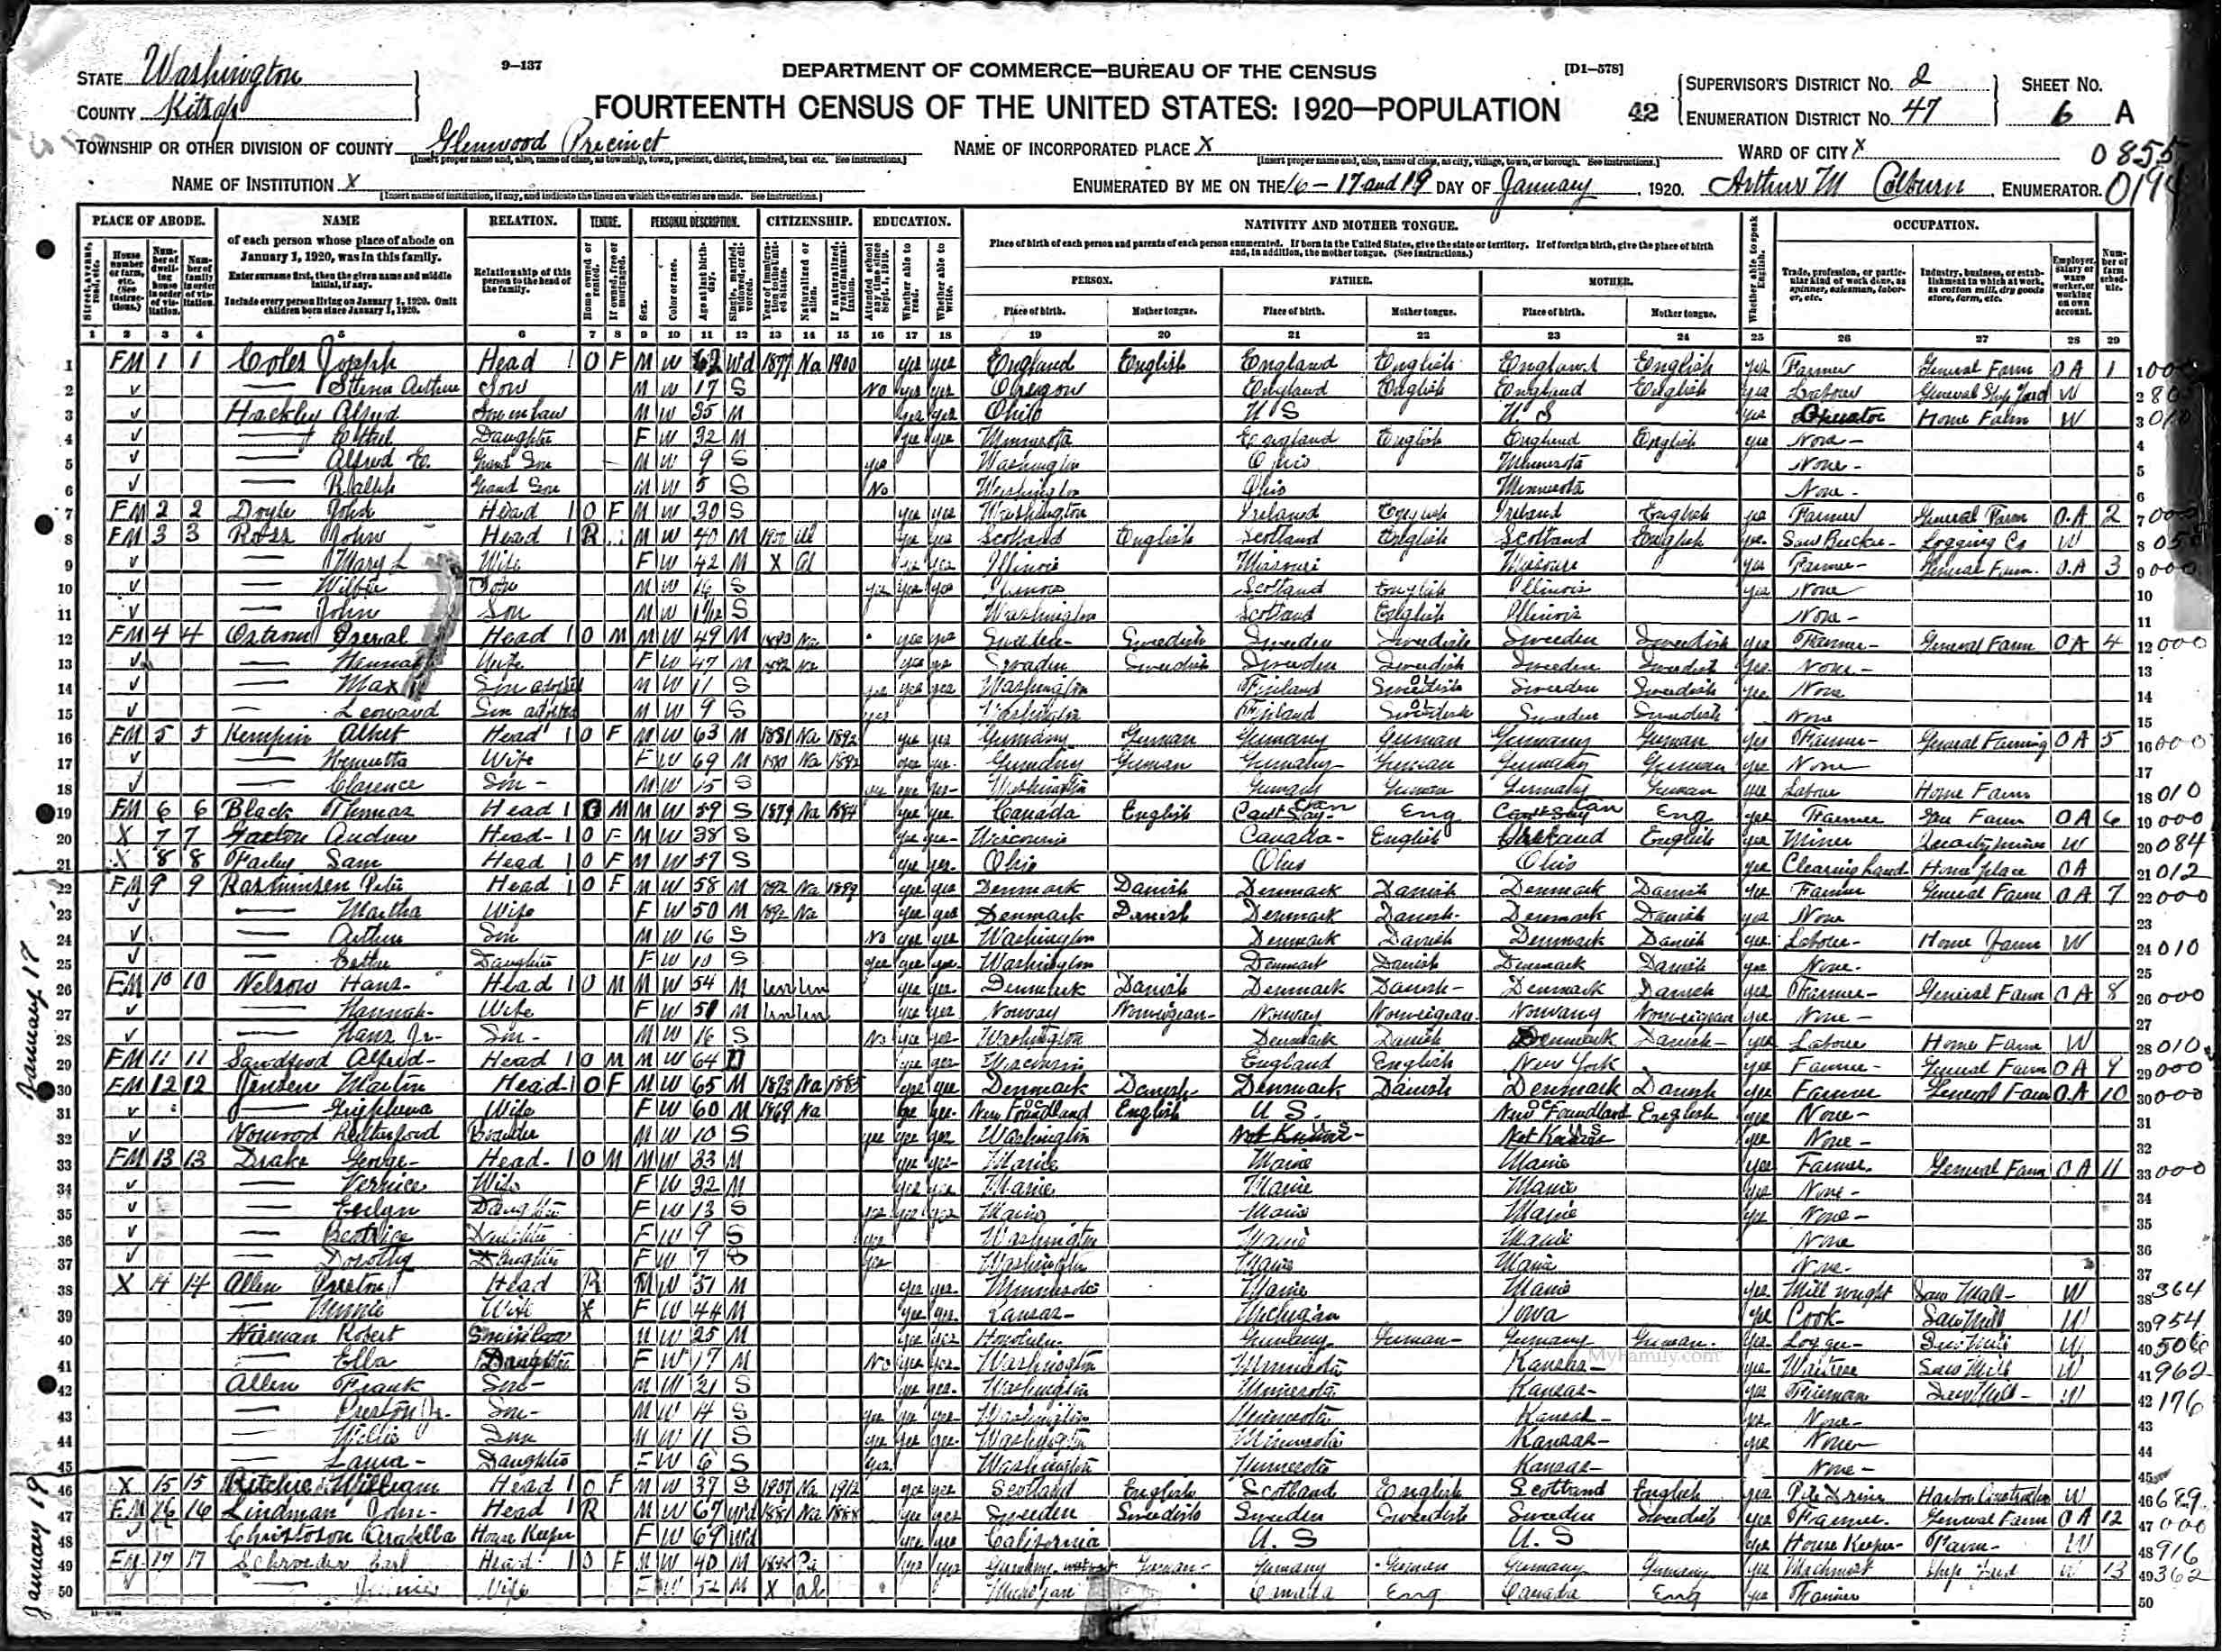 STATE Washington
COUNTY Kitsap
9—137
DEPARTMENT OF COMMERCE—BUREAU OF THE CENSUS
[D1—578]
FOURTEENTH CENSUS OF THE UNITED STATES: 1920—POPULATION
42
SUPERVISOR'S DISTRICT No. 2
ENUMERATION DISTRICT No. 47
SHEET No. 6 A
TOWNSHIP OR OTHER DIVISION OF COUNTY Glenwood Precinct
NAME OF INCORPORATED PLACE X
WARD OF CITY X
0855
NAME OF INSTITUTION X
ENUMERATED BY ME ON THE 16 - 17 and 19 DAY OF January, 1920. Arthur M Colburn, ENUMERATOR.
PLACE OF ABODE. NAME RELATION. TENURE. PERSONAL DESCRIPTION. CITIZENSHIP. EDUCATION. NATIVITY AND MOTHER TONGUE. OCCUPATION.
of each person whose place of abode on January 1, 1920, was in this family.
Enter surname first, then the given name and middle initial, if any.
Include every person living on January 1, 1920. Omit children born since January 1, 1920.
Relationship of this person to the head of the family.
Place of birth of each person and parents of each person enumerated. If born in the United States, give the state or territory. If of foreign birth, give the place of birth and, in addition, the mother tongue. (See instructions.)
PERSON. FATHER. MOTHER.
Place of birth. Mother tongue. Place of birth. Mother tongue. Place of birth. Mother tongue.
1 2 3 4 5 6 7 8 9 10 11 12 13 14 15 16 17 18 19 20 21 22 23 24 25 26 27 28 29
1 FM 1 1 Coles Joseph Head 1 O F M W 62 Wd 1877 Na 1900 yes yes England English England English England English yes Farmer General Farm OA 1
2 Son M W 17 S No yes yes Oregon England English England English yes Labour General Ship Yard W
3 Hackley Alfred Son in Law M W 35 M yes yes Ohio U S U S yes Operator Home Farm W
4 Ethel Daughter F W 32 M yes yes Minnesota England English England English yes None
5 Alfred E. Grand Son M W 9 S yes Washington Ohio Minnesota None
6 Ralph Grand Son M W 5 S No Washington Ohio Minnesota None
7 FM 2 2 Doyle John Head 1 O F M W 30 S yes yes Washington Ireland English Ireland English yes Farmer General Farm O.A 2
8 FM 3 3 Ross John Head 1 R M W 40 M 1900 yes yes Scotland English Scotland English Scotland English yes Saw Bucker Logging Co W
9 Mary L Wife F W 42 M X Al yes yes Illinois Missouri Missouri yes Farmer General Farm O.A 3
10 Son M W 16 S yes yes yes Illinois Scotland English Illinois yes None
11 John Son M W S Washington Scotland English Illinois None
12 FM 4 4 Head 1 O M M W 49 M Na yes yes Sweden Swedish Sweden Swedish Sweden Swedish yes Farmer General Farm OA 4 000
13 Hannah Wife F W 47 M 1892 Na yes yes Sweden Swedish Sweden Swedish Sweden Swedish yes None
14 Max Son adopted M W 11 S yes yes yes Washington Finland Swedish Sweden Swedish yes None
15 Leonard Son adopted M W 9 S yes Washington Finland Swedish Sweden Swedish None
16 FM 5 5 Kempin Head 1 O F M W 63 M 1881 Na 1892 yes yes Germany German Germany German Germany German yes Farmer General Farming OA 5 000
17 Henrietta Wife F W 69 M Na 1892 yes yes Germany German Germany German Germany German yes None
18 Clarence Son M W 15 S yes yes yes Washington Germany German Germany German yes Labour Home Farm 010
19 FM 6 6 Black Thomas Head 1 O M M W 59 S 1879 Na 1884 yes yes Canada English Can Eng Can Eng yes Farmer Gen Farm OA 6 000
20 X 7 7 Andrew Head 1 O F M W 38 S yes yes Wisconsin Canada English English yes Miner W 084
21 X 8 8 Farley Sam Head 1 O F M W 57 S yes yes Ohio Ohio Ohio yes Clearing land Home place OA 012
22 FM 9 9 Rasmussen Peter Head 1 O F M W 58 M 1892 Na 1899 yes yes Denmark Danish Denmark Danish Denmark Danish yes Farmer General Farm OA 7 000
23 Martha Wife F W 50 M 1892 Na yes yes Denmark Danish Denmark Danish Denmark Danish yes None
24 Arthur Son M W 16 S No yes yes Washington Denmark Danish Denmark Danish yes Labour Home Farm W 010
25 Esther Daughter F W 10 S yes yes yes Washington Denmark Danish Denmark Danish yes None
26 FM 10 10 Nelson Hans Head 1 O M M W 54 M Un Un yes yes Denmark Danish Denmark Danish Denmark Danish yes Farmer General Farm OA 8 000
27 Hannah Wife F W 51 M Un Un yes yes Norway Norweigean Norway Norweigean Norway Norweigean yes None
28 Hans Jr. Son M W 16 S No yes yes Washington Denmark Danish Denmark Danish yes Labour Home Farm W 010
29 FM 11 11 Sandford Alfred Head 1 O M M W 64 D yes yes Wisconsin England English New York yes Farmer General Farm OA 9 000
30 FM 12 12 Jensen Martin Head 1 O F M W 65 M 1873 Na 1885 yes yes Denmark Danish Denmark Danish Denmark Danish yes Farmer General Farm OA 10 000
31 Wife F W 60 M 1869 Na yes yes New Foundland English U.S. New Foundland English yes None
32 Rutherford Boarder M W 10 S yes yes yes Washington Not Known Not Known yes None
33 FM 13 13 Drake George Head 1 O M M W 33 M yes yes Maine Maine Maine yes Farmer General Farm OA 11 000
34 Vernice Wife F W 32 M yes yes Maine Maine Maine yes None
35 Evelyn Daughter F W 13 S yes yes yes Maine Maine Maine yes None
36 Beatrice Daughter F W 9 S yes Washington Maine Maine None
37 Dorothy Daughter F W 7 S yes Washington Maine Maine None
38 X 14 14 Allen Preston Head R M W 51 M yes yes Minnesota Maine Maine yes Mill wright Saw Mill W 364
39 Minnie Wife X F W 44 M yes yes Kansas Michigan Iowa yes Cook Saw Mill W 954
40 Robert Son in law M W 25 M yes yes Honolulu Germany German Germany German yes Logger Saw Mill W
MyFamily.com
41 Ella Daughter F W 17 M No yes yes Washington Minnesota Kansas yes Waitress Saw Mill W 962
42 Allen Frank Son M W 21 S yes yes Washington Minnesota Kansas yes Fireman Saw Mill W 176
43 Preston Jr. Son M W 14 S yes yes yes Washington Minnesota Kansas yes None
44 Willie Son M W 11 S yes yes yes Washington Minnesota Kansas yes None
45 Daughter F W 6 S yes Washington Minnesota Kansas None
46 X 15 15 Ritchie William Head 1 O F M W 37 S 1907 Na 1912 yes yes Scotland English Scotland English Scotland English yes Pile Driver Harbor Construction W 689
47 FM 16 16 Lindman John Head 1 R M W 67 Wd 1881 Na 1888 yes yes Sweden Swedish Sweden Swedish Sweden Swedish yes Farmer General Farm OA 12 000
48 Arabella House Keeper F W 69 Wd yes yes California U.S U.S yes House Keeper Farm W 916
49 FM 17 17 Schroeder Carl Head 1 O F M W 40 M Pa yes yes Germany German Germany German Germany German yes Machinist Ship Yard W 13 362
50 Wife F W 52 M X al Michigan Canada Eng Canada Eng yes Farmer
January 17
January 19